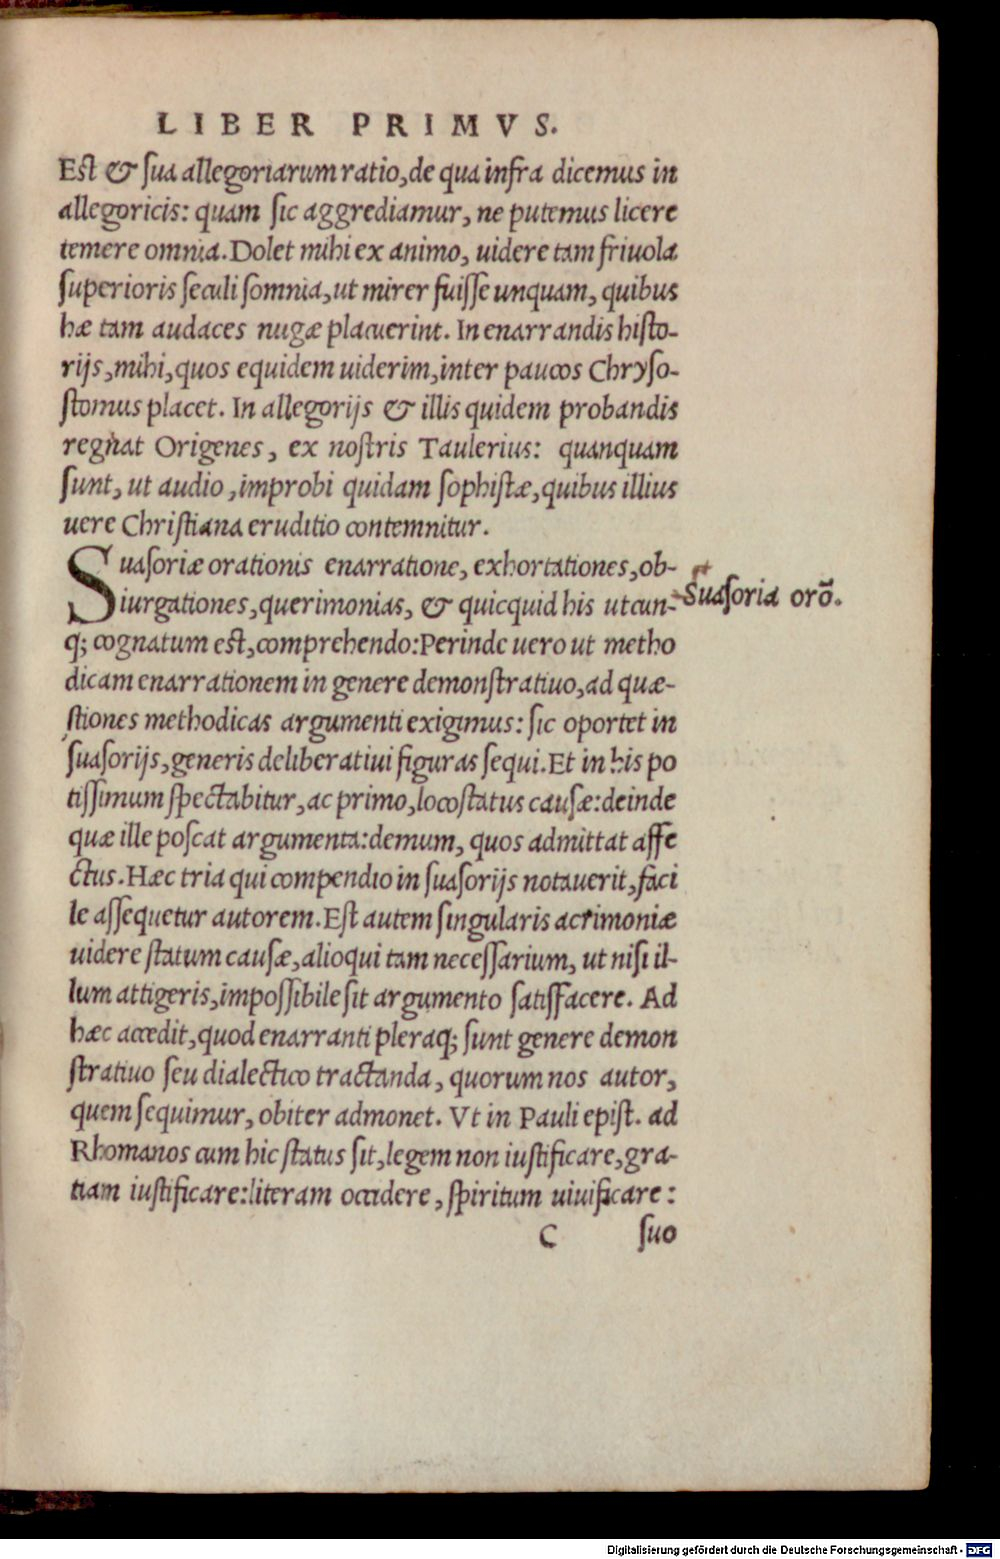 LIBER PRIMVS.
Est & sua allegoriarum ratio, de qua infra dicemus in
allegoricis: quam sic aggrediamur, ne putemus licere
temere omnia. Dolet mihi ex animo, uidere tam friuola
superioris seculi somnia, ut mirer fuisse unquam, quibus
hæ tam audaces nugæ placuerint. In enarrandis histo-
rijs, mihi, quos equidem uiderim, inter paucos Chryso-
stomus placet. In allegorijs & illis quidem probandis
regnat Origenes, ex nostris Taulerius: quanquam
sunt, ut audio, improbi quidam sophistæ, quibus illius
uere Christiana eruditio contemnitur.
Suasoriæ orationis enarratione, exhortationes, ob-
iurgationes, querimonias, & quicquid his utcun-
q; cognatum est, comprehendo: Perinde uero ut metho
dicam enarrationem in genere demonstratiuo, ad quæ-
stiones methodicas argumenti exigimus: sic oportet in
suasorijs, generis deliberatiui figuras sequi. Et in his po
tissimum spectabitur, ac primo, loco status causæ: deinde
quæ ille poscat argumenta: demum, quos admittat affe
ctus. Hæc tria qui compendio in suasorijs notauerit, faci
le assequetur autorem. Est autem singularis acrimoniæ
uidere statum causæ, alioqui tam necessarium, ut nisi il-
lum attigeris, impossibile sit argumento satisfacere. Ad
hæc accedit, quod enarranti pleraq; sunt genere demon
stratiuo seu dialectico tractanda, quorum nos autor,
quem sequimur, obiter admonet. Vt in Pauli epist. ad
Rhomanos cum hic status sit, legem non iustificare, gra-
tiam iustificare: literam occidere, spiritum uiuificare:
C suo
Suasoria orõ.
Digitalisierung gefördert durch die Deutsche Forschungsgemeinschaft - DFG